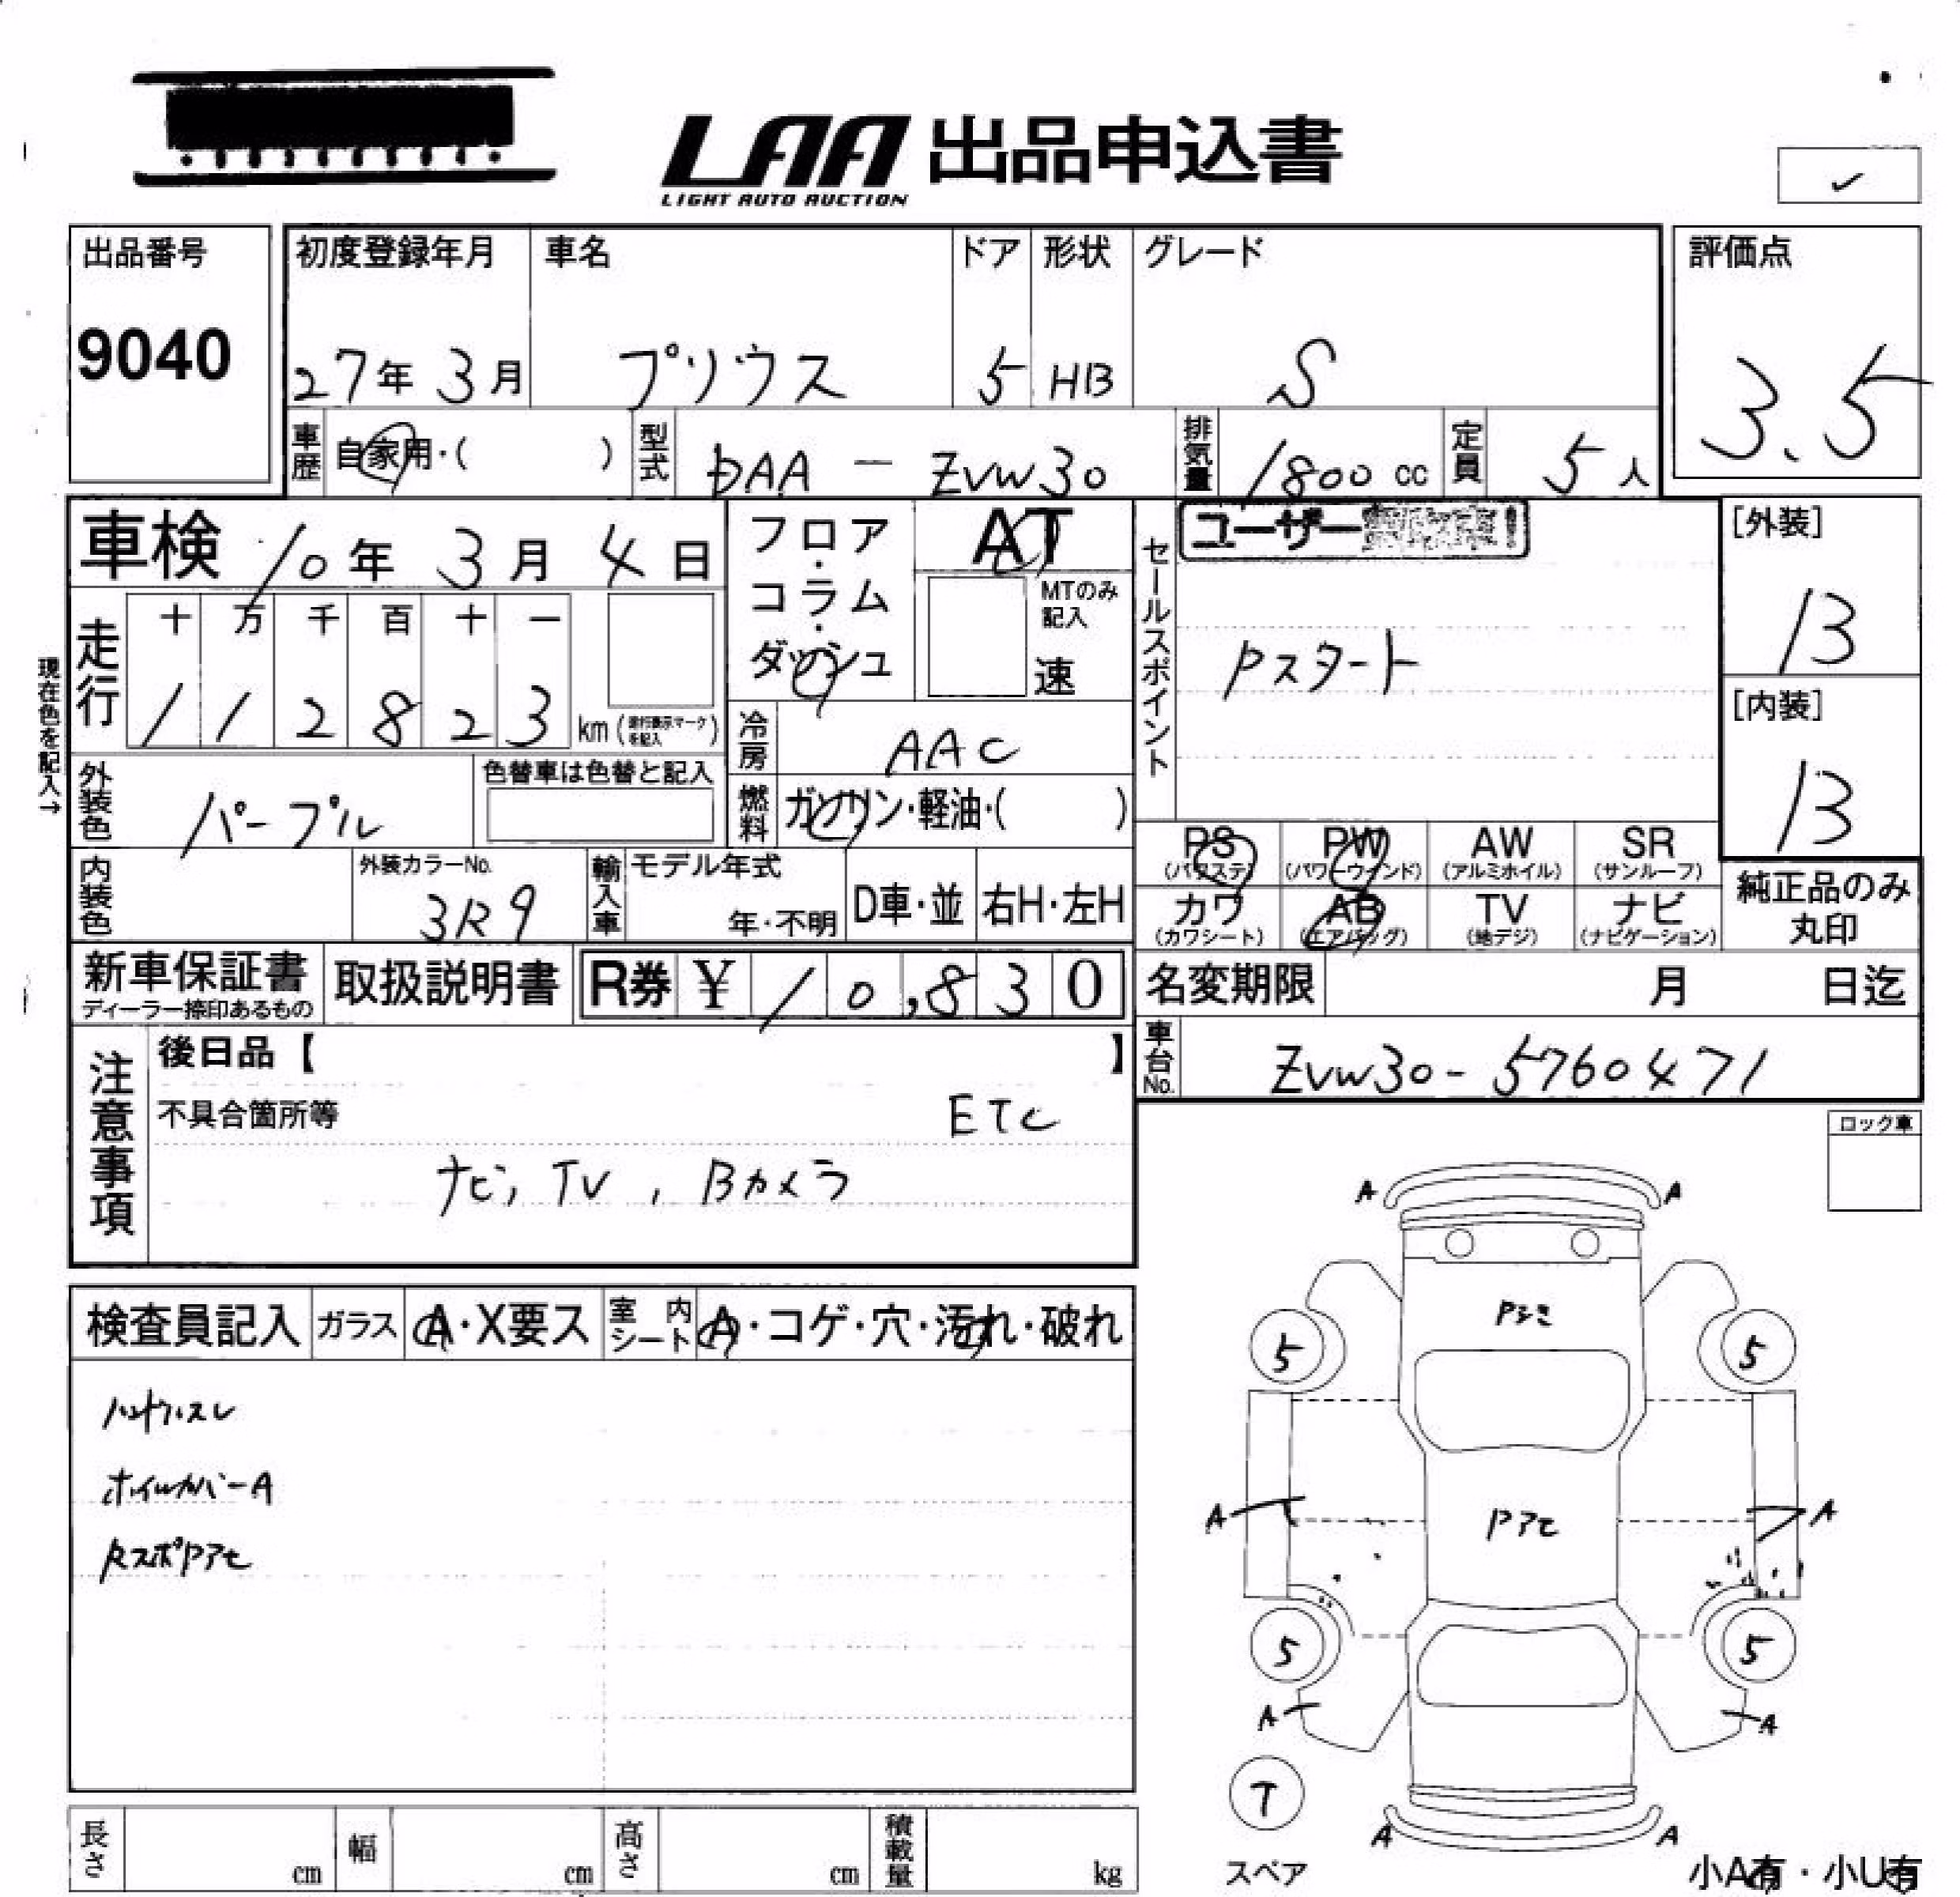 LAA 出品申込書
LIGHT AUTO AUCTION
出品番号
9040
初度登録年月
27年 3月
車名
プリウス
ドア
5
形状
HB
グレード
S
評価点
3.5
車歴 自家用・( )
型式 DAA - ZVW30
排気量 1800 cc
定員 5 人
車検 10年 3月 4日
フロア・コラム・ダッシュ
AT
MTのみ記入
速
セールスポイント
ユーザー
Pスタート
[外装]
B
[内装]
B
現在色を記入→
走行
十 万 千 百 十 一
1 1 2 8 2 3 km (走行表示マークを記入)
冷房 AAC
燃料 ガソリン・軽油・( )
外装色 パープル
色替車は色替と記入
PS (パワステ)
PW (パワーウインド)
AW (アルミホイル)
SR (サンルーフ)
カワ (カワシート)
AB (エアバッグ)
TV (地デジ)
ナビ (ナビゲーション)
純正品のみ丸印
内装色
外装カラーNo.
3R9
輸入車
モデル年式
年・不明
D車・並
右H・左H
新車保証書
ディーラー捺印あるもの
取扱説明書
R券 ¥ 10,830
名変期限 月 日迄
車台No. ZVW30-5760471
注意事項
後日品【 】
不具合箇所等
ETC
ナビ, TV, Bカメラ
ロック車
検査員記入
ガラス A・X要ス
室内シート A・コゲ・穴・汚れ・破れ
ハンドルスレ
ホイルカバーA
RスポPアセ
A A
Pシミ
5 5
A Pアセ A
5 5
A A
T
スペア
A A
小A有・小U有
長さ cm
幅 cm
高さ cm
積載量 kg